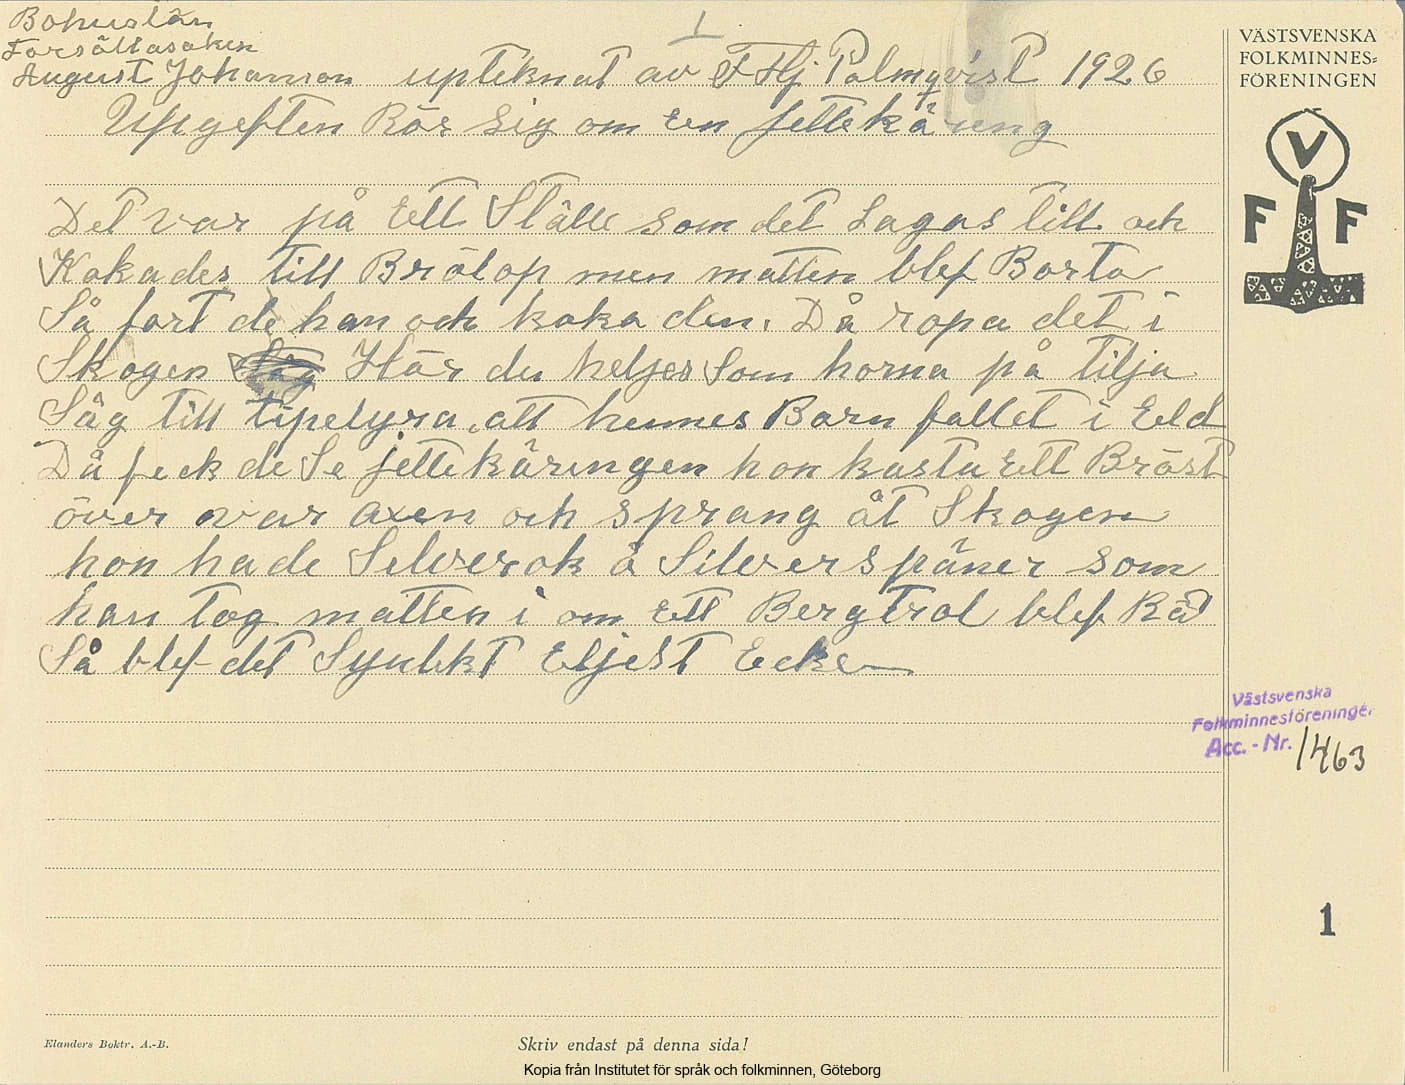 Bohuslän
Torsåkasoken
August Johanson upteknat av F Hj Palmqvist 1926
1
Upgeften Rör sig om Een jettekäring
Det var på Ett Ställe som det Lagas till och
Kokades till Brölop men matten blef Borta
Så fort de han och koka den. Då ropa det i
Skogen Hör du heljer Som horna på tilja
Säg till tipelyra, att hennes Barn fallet i Eeld
Då feck de Se jettekäringen hon kasta Ett Bröst
över var axen och sprang åt Skogen
hon hade Selverok å Silverspåner som
han tog matten i om Ett Bergtrol blef Räd
Så blef det Synlekt Eljest Ecke
VÄSTSVENSKA
FOLKMINNES=
FÖRENINGEN
V
F F
Västsvenska
Folkminnesföreningen
Acc. - Nr. 1463
1
Elanders Boktr. A.-B.
Skriv endast på denna sida!
Kopia från Institutet för språk och folkminnen, Göteborg